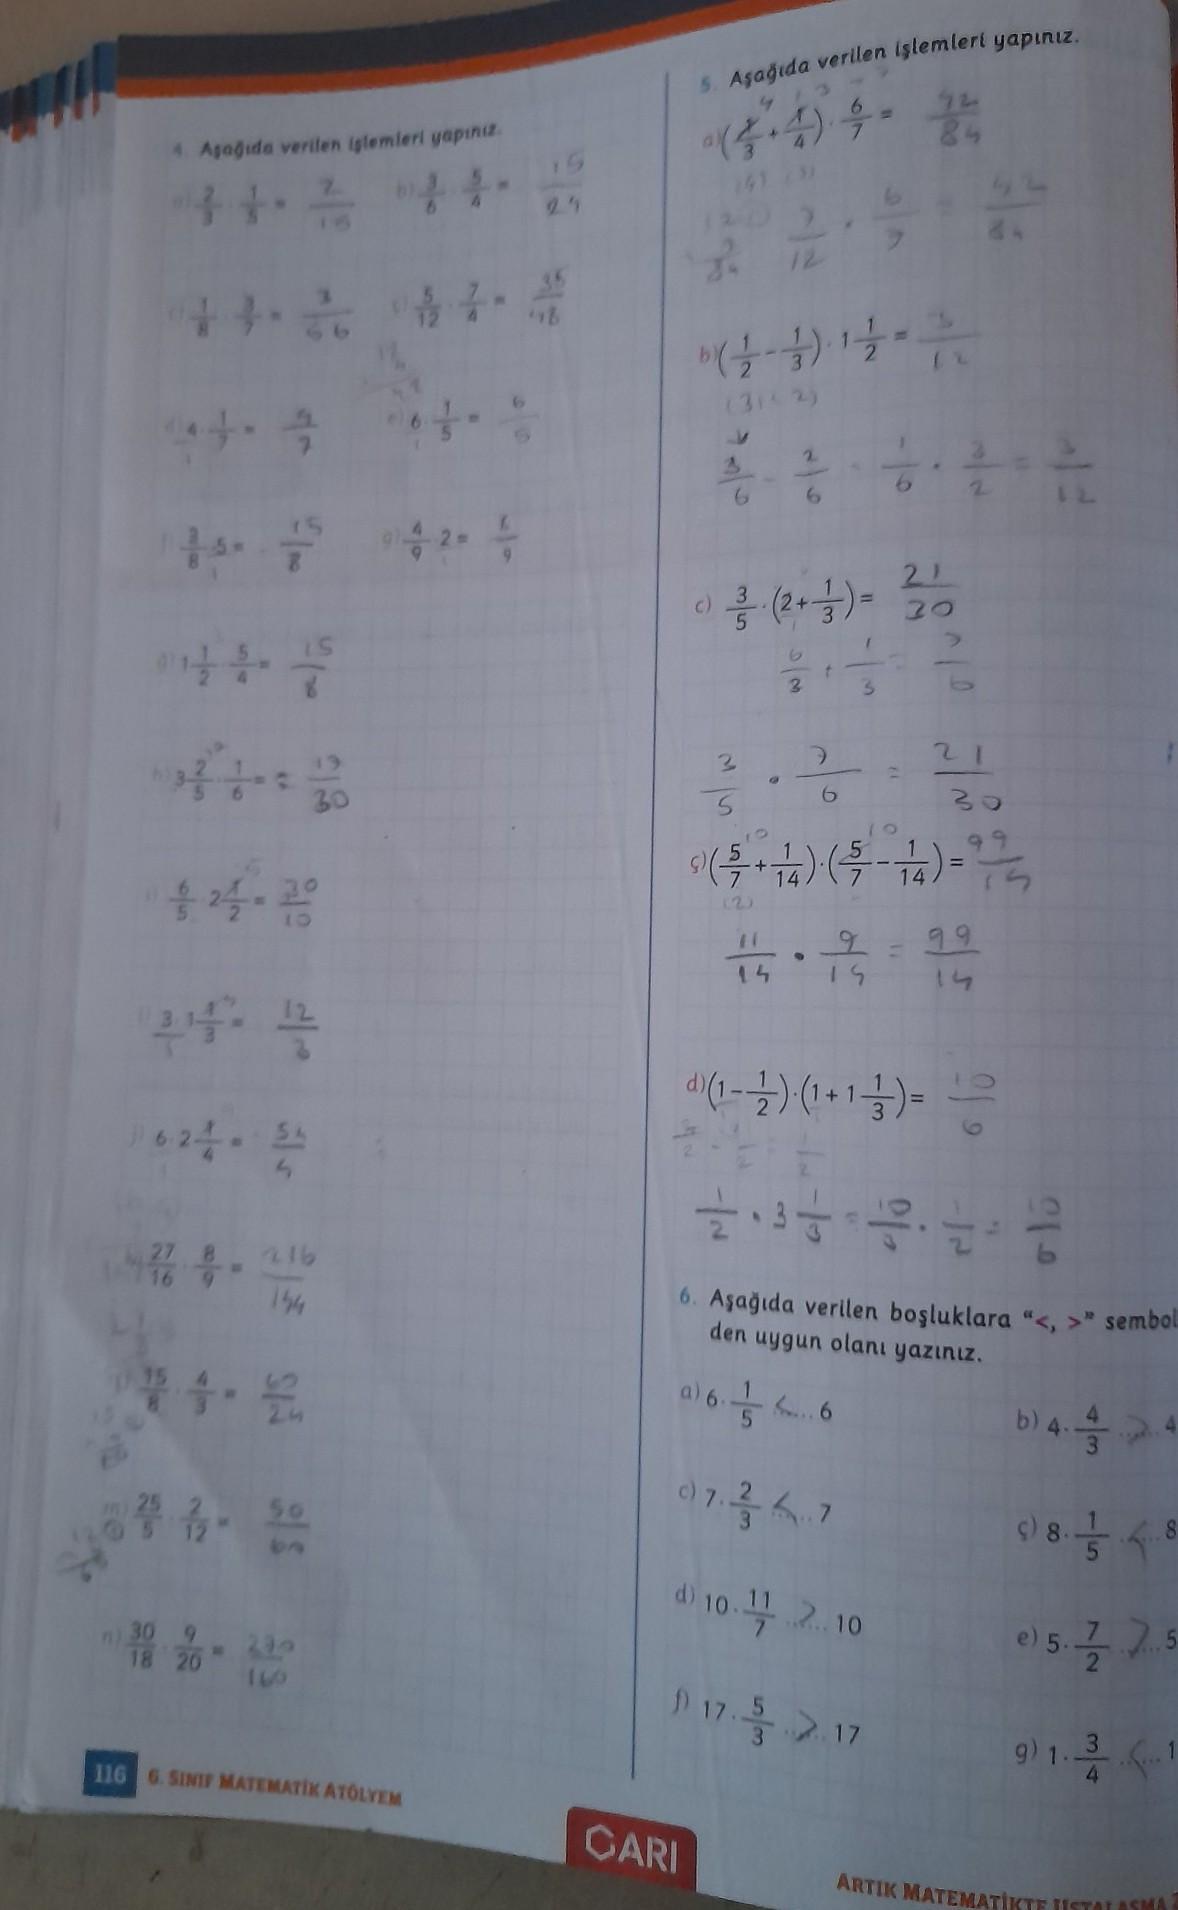 4. Aşağıda verilen işlemleri yapınız.
a) 2/3 · 1/5 = 2/15
b) 3/6 · 5/4 = 15/24
c) 1/8 · 3/7 = 3/56
ç) 5/12 · 7/4 = 35/48
d) 4 · 1/7 = 4/7
e) 6 · 1/5 = 6/5
f) 3/8 · 5 = 15/8
g) 4/9 · 2 = 8/9
ğ) 1 1/2 · 5/4 = 15/8
h) 3 2/5 · 1/6 = 17/30
ı) 6/5 · 2 1/2 = 30/10
i) 3 · 1 1/3 = 12/3
j) 6 · 2 1/4 = 54/4
k) 27/16 · 8/9 = 216/144
l) 15/8 · 4/3 = 60/24
m) 25/5 · 2/12 = 50/60
n) 30/18 · 9/20 = 270/160
116 6. SINIF MATEMATİK ATÖLYEM
5. Aşağıda verilen işlemleri yapınız.
a) (1/3 + 1/4) · 6/7 = 42/84
(4) (3)
7/12 · 6/7 = 42/84
b) (1/2 - 1/3) · 1 1/2 = 3/12
(3) (2)
3/6 - 2/6 = 1/6 · 3/2 = 3/12
c) 3/5 · (2 + 1/3) = 21/30
6/3 + 1/3 = 7/6
3/5 · 7/6 = 21/30
ç) (5/7 + 1/14) · (5/7 - 1/14) = 99/14
(2)
11/14 · 9/14 = 99/14
d) (1 - 1/2) · (1 + 1 1/3) = 10/6
1/2 · 3 1/3 = 10/3 · 1/2 = 10/6
6. Aşağıda verilen boşluklara "<, >" sembol
den uygun olanı yazınız.
a) 6 · 1/5 < 6
b) 4 · 4/3 > 4
c) 7 · 2/3 < 7
ç) 8 · 1/5 < 8
d) 10 · 11/7 > 10
e) 5 · 7/2 > 5
f) 17 · 5/3 > 17
g) 1 · 3/4 < 1
ARI
ARTIK MATEMATİKTE USTALAŞMA